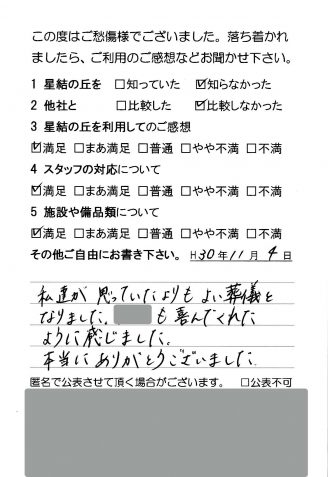 この度はご愁傷様でございました。落ち着かれ
ましたら、ご利用のご感想などお聞かせ下さい。
1 星結の丘を □知っていた ☑知らなかった
2 他社と □比較した ☑比較しなかった
3 星結の丘を利用してのご感想
☑満足 □まあ満足 □普通 □やや不満 □不満
4 スタッフの対応について
☑満足 □まあ満足 □普通 □やや不満 □不満
5 施設や備品類について
☑満足 □まあ満足 □普通 □やや不満 □不満
その他ご自由にお書き下さい。 H30年11月4日
私達が思っていたよりもよい葬儀と
なりました。 も喜んでくれた
ように感じました。
本当にありがとうございました。
匿名で公表させて頂く場合がございます。 □公表不可